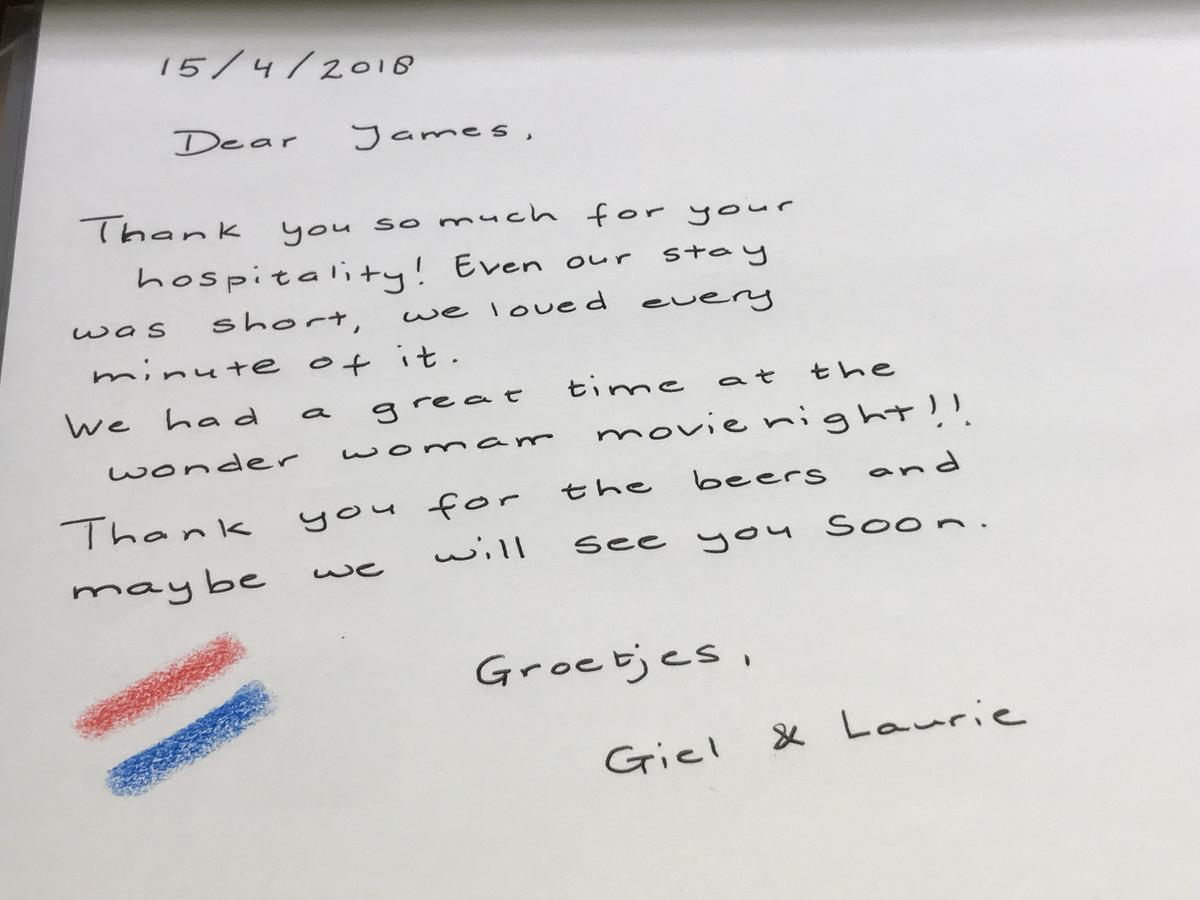 15/4/2018
Dear James,
Thank you so much for your
hospitality! Even our stay
was short, we loved every
minute of it.
We had a great time at the
wonder woman movie night!!
Thank you for the beers and
maybe we will see you soon.
Groetjes,
Giel & Laurie